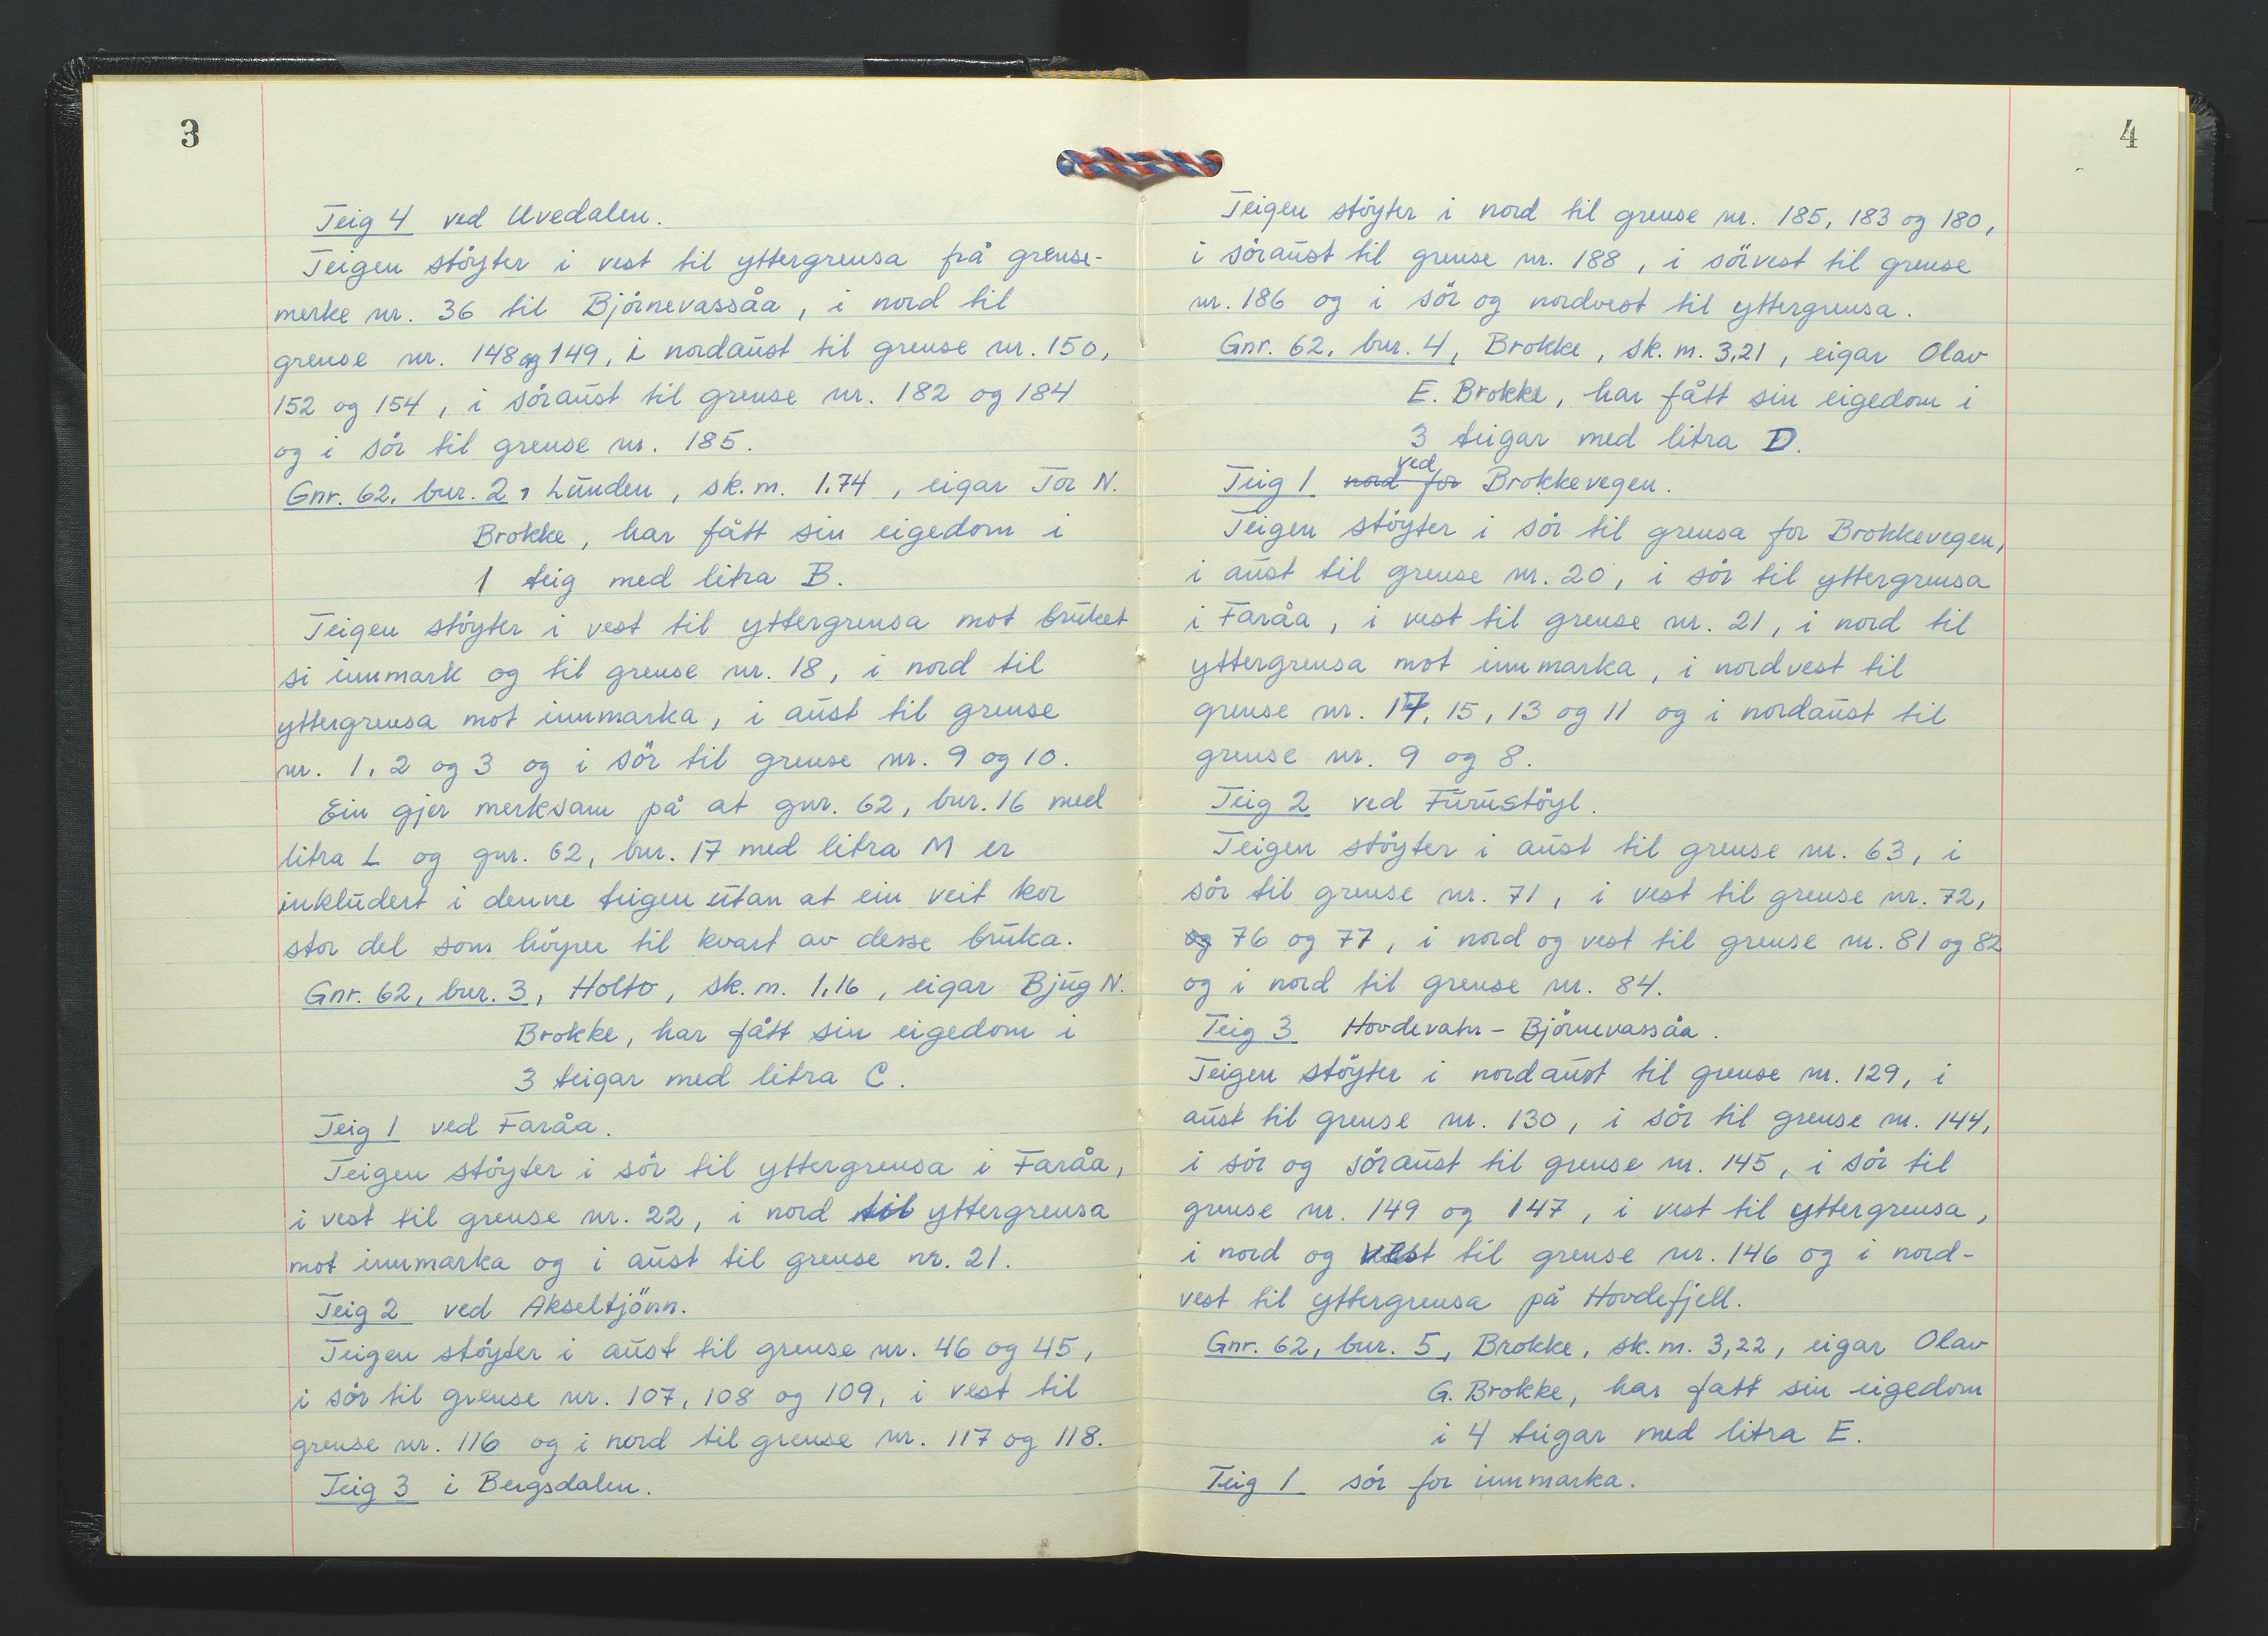 3
Teig 4 ved Uvedalen.
Teigen støyter i vest til yttergrensa frå grense-
merke nr. 36 til Bjørnevassåa, i nord til
grense nr. 148 og 149, i nordaust til grense nr. 150,
152 og 154, i søraust til grense nr. 182 og 184
og i sør til grense nr. 185.
Gnr. 62, bnr. 2, Lunden, sk.m. 1,74, eigar Tor N.
Brokke, har fått sin eigedom i
1 teig med litra B.
Teigen støyter i vest til yttergrensa mot bruket
si innmark og til grense nr. 18, i nord til
yttergrensa mot innmarka, i aust til grense
nr. 1, 2 og 3 og i sør til grense nr. 9 og 10.
Ein gjer merksam på at gnr. 62, bnr. 16 med
litra L og gnr. 62, bnr. 17 med litra M er
inkludert i denne teigen utan at ein veit kor
stor del som høyrer til kvart av desse bruka.
Gnr. 62, bnr. 3, Holto, sk.m. 1,16, eigar Bjug N.
Brokke, har fått sin eigedom i
3 teigar med litra C.
Teig 1 ved Faråa.
Teigen støyter i sør til yttergrensa i Faråa,
i vest til grense nr. 22, i nord til yttergrensa
mot innmarka og i aust til grense nr. 21.
Teig 2 ved Akseltjønn.
Teigen støyter i aust til grense nr. 46 og 45,
i sør til grense nr. 107, 108 og 109, i vest til
grense nr. 116 og i nord til grense nr. 117 og 118.
Teig 3 i Bergsdalen.
4
Teigen støyter i nord til grense nr. 185, 183 og 180,
i søraust til grense nr. 188, i sørvest til grense
nr. 186 og i sør og nordvest til yttergrensa.
Gnr. 62, bnr. 4, Brokke, sk.m. 3,21, eigar Olav
E. Brokke, har fått sin eigedom i
3 teigar med litra D.
ved
Teig 1 nord for Brokkevegen.
Teigen støyter i sør til grensa for Brokkevegen,
i aust til grense nr. 20, i sør til yttergrensa
i Faråa, i vest til grense nr. 21, i nord til
yttergrensa mot innmarka, i nordvest til
grense nr. 17, 15, 13 og 11 og i nordaust til
grense nr. 9 og 8.
Teig 2 ved Furustøyl.
Teigen støyter i aust til grense nr. 63, i
sør til grense nr. 71, i vest til grense nr. 72,
og 76 og 77, i nord og vest til grense nr. 81 og 82
og i nord til grense nr. 84.
Teig 3 Hovdevatn - Bjørnevassåa.
Teigen støyter i nordaust til grense nr. 129, i
aust til grense nr. 130, i sør til grense nr. 144,
i sør og søraust til grense nr. 145, i sør til
grense nr. 149 og 147, i vest til yttergrensa,
i nord og vest til grense nr. 146 og i nord-
vest til yttergrensa på Hovdefjell.
Gnr. 62, bnr. 5, Brokke, sk.m. 3,22, eigar Olav
G. Brokke, har fatt sin eigedom
i 4 teigar med litra E.
Teig 1 sør for innmarka.